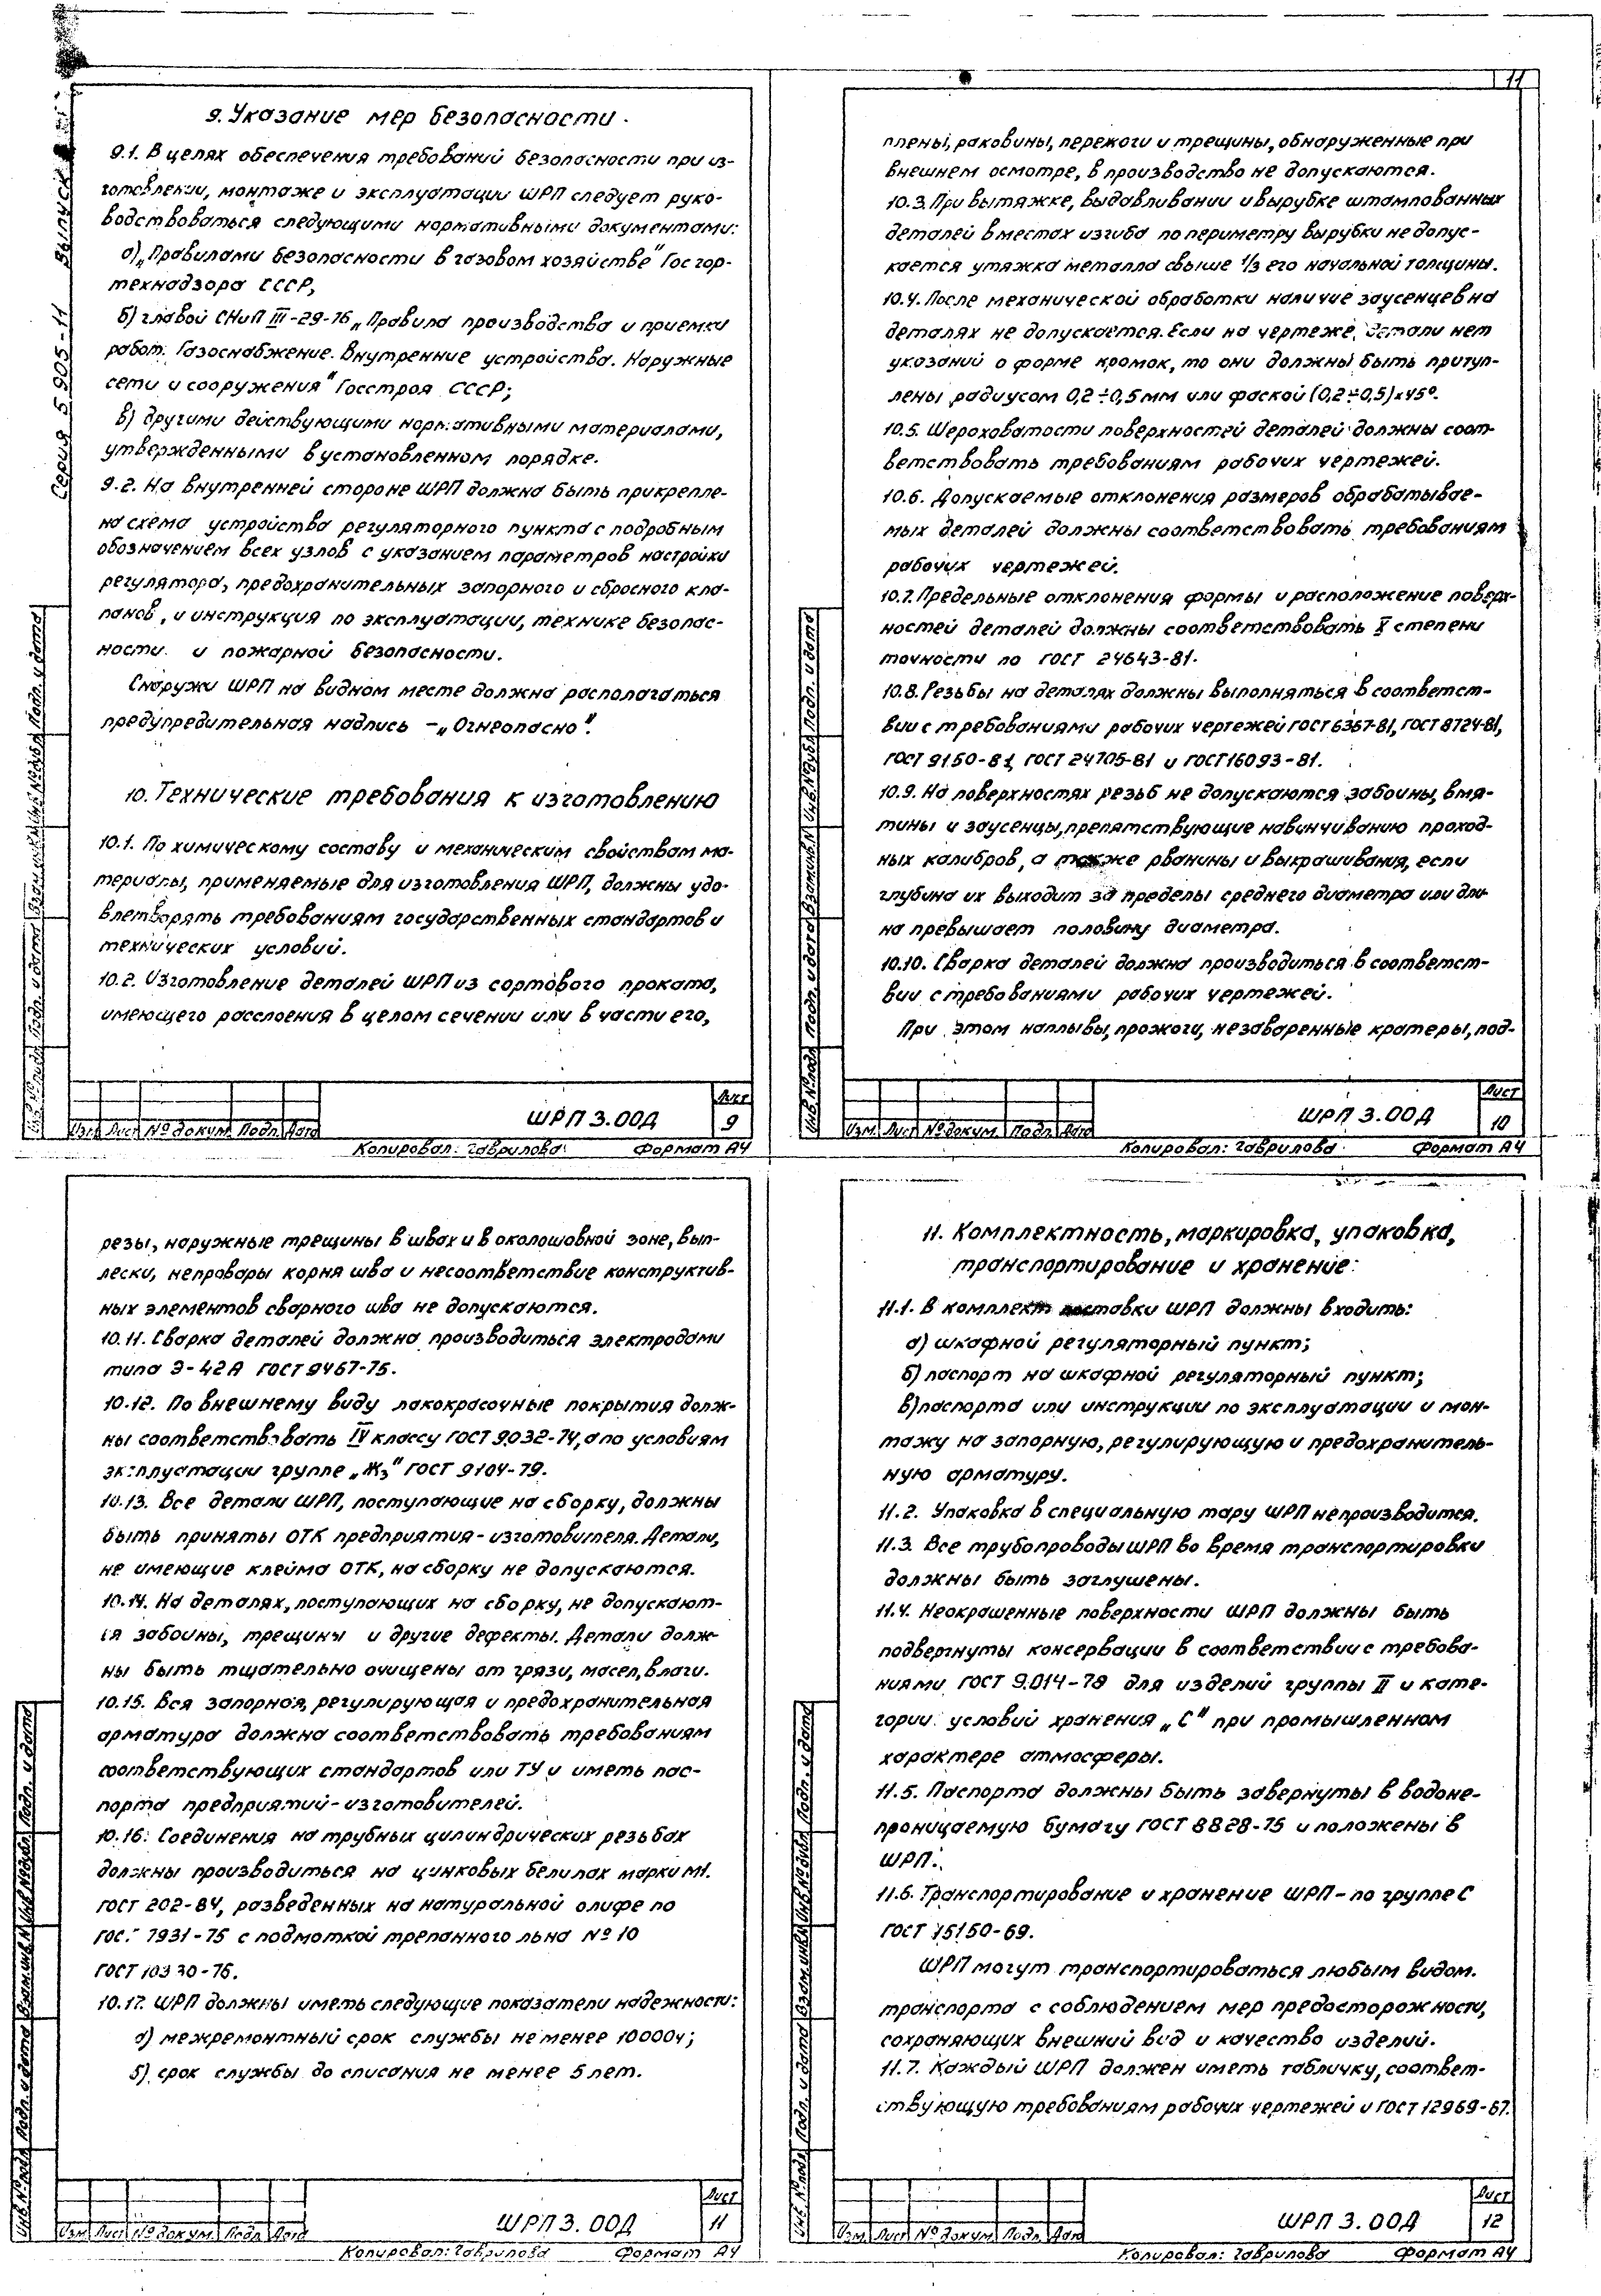 11
Серия 5.905-11 Выпуск
9. Указание мер безопасности.
9.1. В целях обеспечения требований безопасности при из-
готовлении, монтаже и эксплуатации ШРП следует руко-
водствоваться следующими нормативными документами:
а) „Правилами безопасности в газовом хозяйстве" Госгор-
технадзора СССР;
б) главой СНиП III-29-76 „Правила производства и приемки
работ. Газоснабжение. Внутренние устройства. Наружные
сети и сооружения" Госстроя СССР;
в) другими действующими нормативными материалами,
утвержденными в установленном порядке.
9.2. На внутренней стороне ШРП должна быть прикрепле-
на схема устройства регуляторного пункта с подробным
обозначением всех узлов с указанием параметров настройки
регулятора, предохранительных запорного и сбросного кла-
панов, и инструкция по эксплуатации, технике безопас-
ности и пожарной безопасности.
Снаружи ШРП на видном месте должна располагаться
предупредительная надпись – „Огнеопасно".
10. Технические требования к изготовлению
10.1. По химическому составу и механическим свойствам ма-
териалы, применяемые для изготовления ШРП, должны удо-
влетворять требованиям государственных стандартов и
технических условий.
10.2. Изготовление деталей ШРП из сортового проката,
имеющего расслоения в целом сечении или в части его,
Инв. № подл. Подп. и дата Взам. инв. № Инв. № дубл. Подп. и дата
Изм. Лист № докум. Подп. Дата
ШРП 3.00Д
Лист
9
Копировал: Гаврилова Формат А4
плены, раковины, пережоги и трещины, обнаруженные при
внешнем осмотре, в производство не допускаются.
10.3. При вытяжке, выдавливании и вырубке штампованных
деталей в местах изгиба по периметру вырубки не допус-
кается утяжка металла свыше 1/3 его начальной толщины.
10.4. После механической обработки наличие заусенцев на
деталях не допускается. Если на чертеже детали нет
указаний о форме кромок, то они должны быть притуп-
лены радиусом 0,2÷0,5 мм или фаской (0,2÷0,5)×45°.
10.5. Шероховатости поверхностей деталей должны соот-
ветствовать требованиям рабочих чертежей.
10.6. Допускаемые отклонения размеров обрабатывае-
мых деталей должны соответствовать требованиям
рабочих чертежей.
10.7. Предельные отклонения формы и расположение поверх-
ностей деталей должны соответствовать X степени
точности по ГОСТ 24643-81.
10.8. Резьбы на деталях должны выполняться в соответст-
вии с требованиями рабочих чертежей ГОСТ 6357-81, ГОСТ 8724-81,
ГОСТ 9150-81, ГОСТ 24705-81 и ГОСТ 16093-81.
10.9. На поверхностях резьб не допускаются забоины, вмя-
тины и заусенцы, препятствующие навинчиванию проход-
ных калибров, а также рванины и выкрашивания, если
глубина их выходит за пределы среднего диаметра или дли-
на превышает половину диаметра.
10.10. Сварка деталей должна производиться в соответст-
вии с требованиями рабочих чертежей.
При этом наплывы, прожоги, незаваренные кратеры, под-
Инв. № подл. Подп. и дата Взам. инв. № Инв. № дубл. Подп. и дата
Изм. Лист № докум. Подп. Дата
ШРП 3.00Д
Лист
10
Копировал: Гаврилова Формат А4
резы, наружные трещины в швах и в околошовной зоне, вып-
лески, непровары корня шва и несоответствие конструктив-
ных элементов сварного шва не допускаются.
10.11. Сварка деталей должна производиться электродами
типа Э-42А ГОСТ 9467-75.
10.12. По внешнему виду лакокрасочные покрытия долж-
ны соответствовать IV классу ГОСТ 9.032-74, а по условиям
эксплуатации группе „Ж3" ГОСТ 9104-79.
10.13. Все детали ШРП, поступающие на сборку, должны
быть приняты ОТК предприятия-изготовителя. Детали,
не имеющие клейма ОТК, на сборку не допускаются.
10.14. На деталях, поступающих на сборку, не допускают-
ся забоины, трещины и другие дефекты. Детали долж-
ны быть тщательно очищены от грязи, масел, влаги.
10.15. Вся запорная, регулирующая и предохранительная
арматура должна соответствовать требованиям
соответствующих стандартов или ТУ и иметь пас-
порта предприятий-изготовителей.
10.16. Соединения на трубных цилиндрических резьбах
должны производиться на цинковых белилах марки М1.
ГОСТ 202-84, разведенных на натуральной олифе по
ГОСТ 7931-75 с подмоткой трепанного льна № 10
ГОСТ 10330-76.
10.17. ШРП должны иметь следующие показатели надежности:
а) межремонтный срок службы не менее 10000ч;
б) срок службы до списания не менее 5 лет.
Инв. № подл. Подп. и дата Взам. инв. № Инв. № дубл. Подп. и дата
Изм. Лист № докум. Подп. Дата
ШРП 3.00Д
Лист
11
Копировал: Гаврилова Формат А4
11. Комплектность, маркировка, упаковка,
транспортирование и хранение:
11.1. В комплект поставки ШРП должны входить:
а) шкафной регуляторный пункт;
б) паспорт на шкафной регуляторный пункт;
в) паспорта или инструкции по эксплуатации и мон-
тажу на запорную, регулирующую и предохранитель-
ную арматуру.
11.2. Упаковка в специальную тару ШРП не производится.
11.3. Все трубопроводы ШРП во время транспортировки
должны быть заглушены.
11.4. Неокрашенные поверхности ШРП должны быть
подвергнуты консервации в соответствии с требова-
ниями ГОСТ 9.014-78 для изделий группы II и кате-
гории условий хранения „С" при промышленном
характере атмосферы.
11.5. Паспорта должны быть завернуты в водоне-
проницаемую бумагу ГОСТ 8828-75 и положены в
ШРП.
11.6. Транспортирование и хранение ШРП – по группе С
ГОСТ 15150-69.
ШРП могут транспортироваться любым видом.
транспорта с соблюдением мер предосторожности,
сохраняющих внешний вид и качество изделий.
11.7. Каждый ШРП должен иметь табличку, соответ-
ствующую требованиям рабочих чертежей и ГОСТ 12969-67.
Инв. № подл. Подп. и дата Взам. инв. № Инв. № дубл. Подп. и дата
Изм. Лист № докум. Подп. Дата
ШРП 3.00Д
Лист
12
Копировал: Гаврилова Формат А4